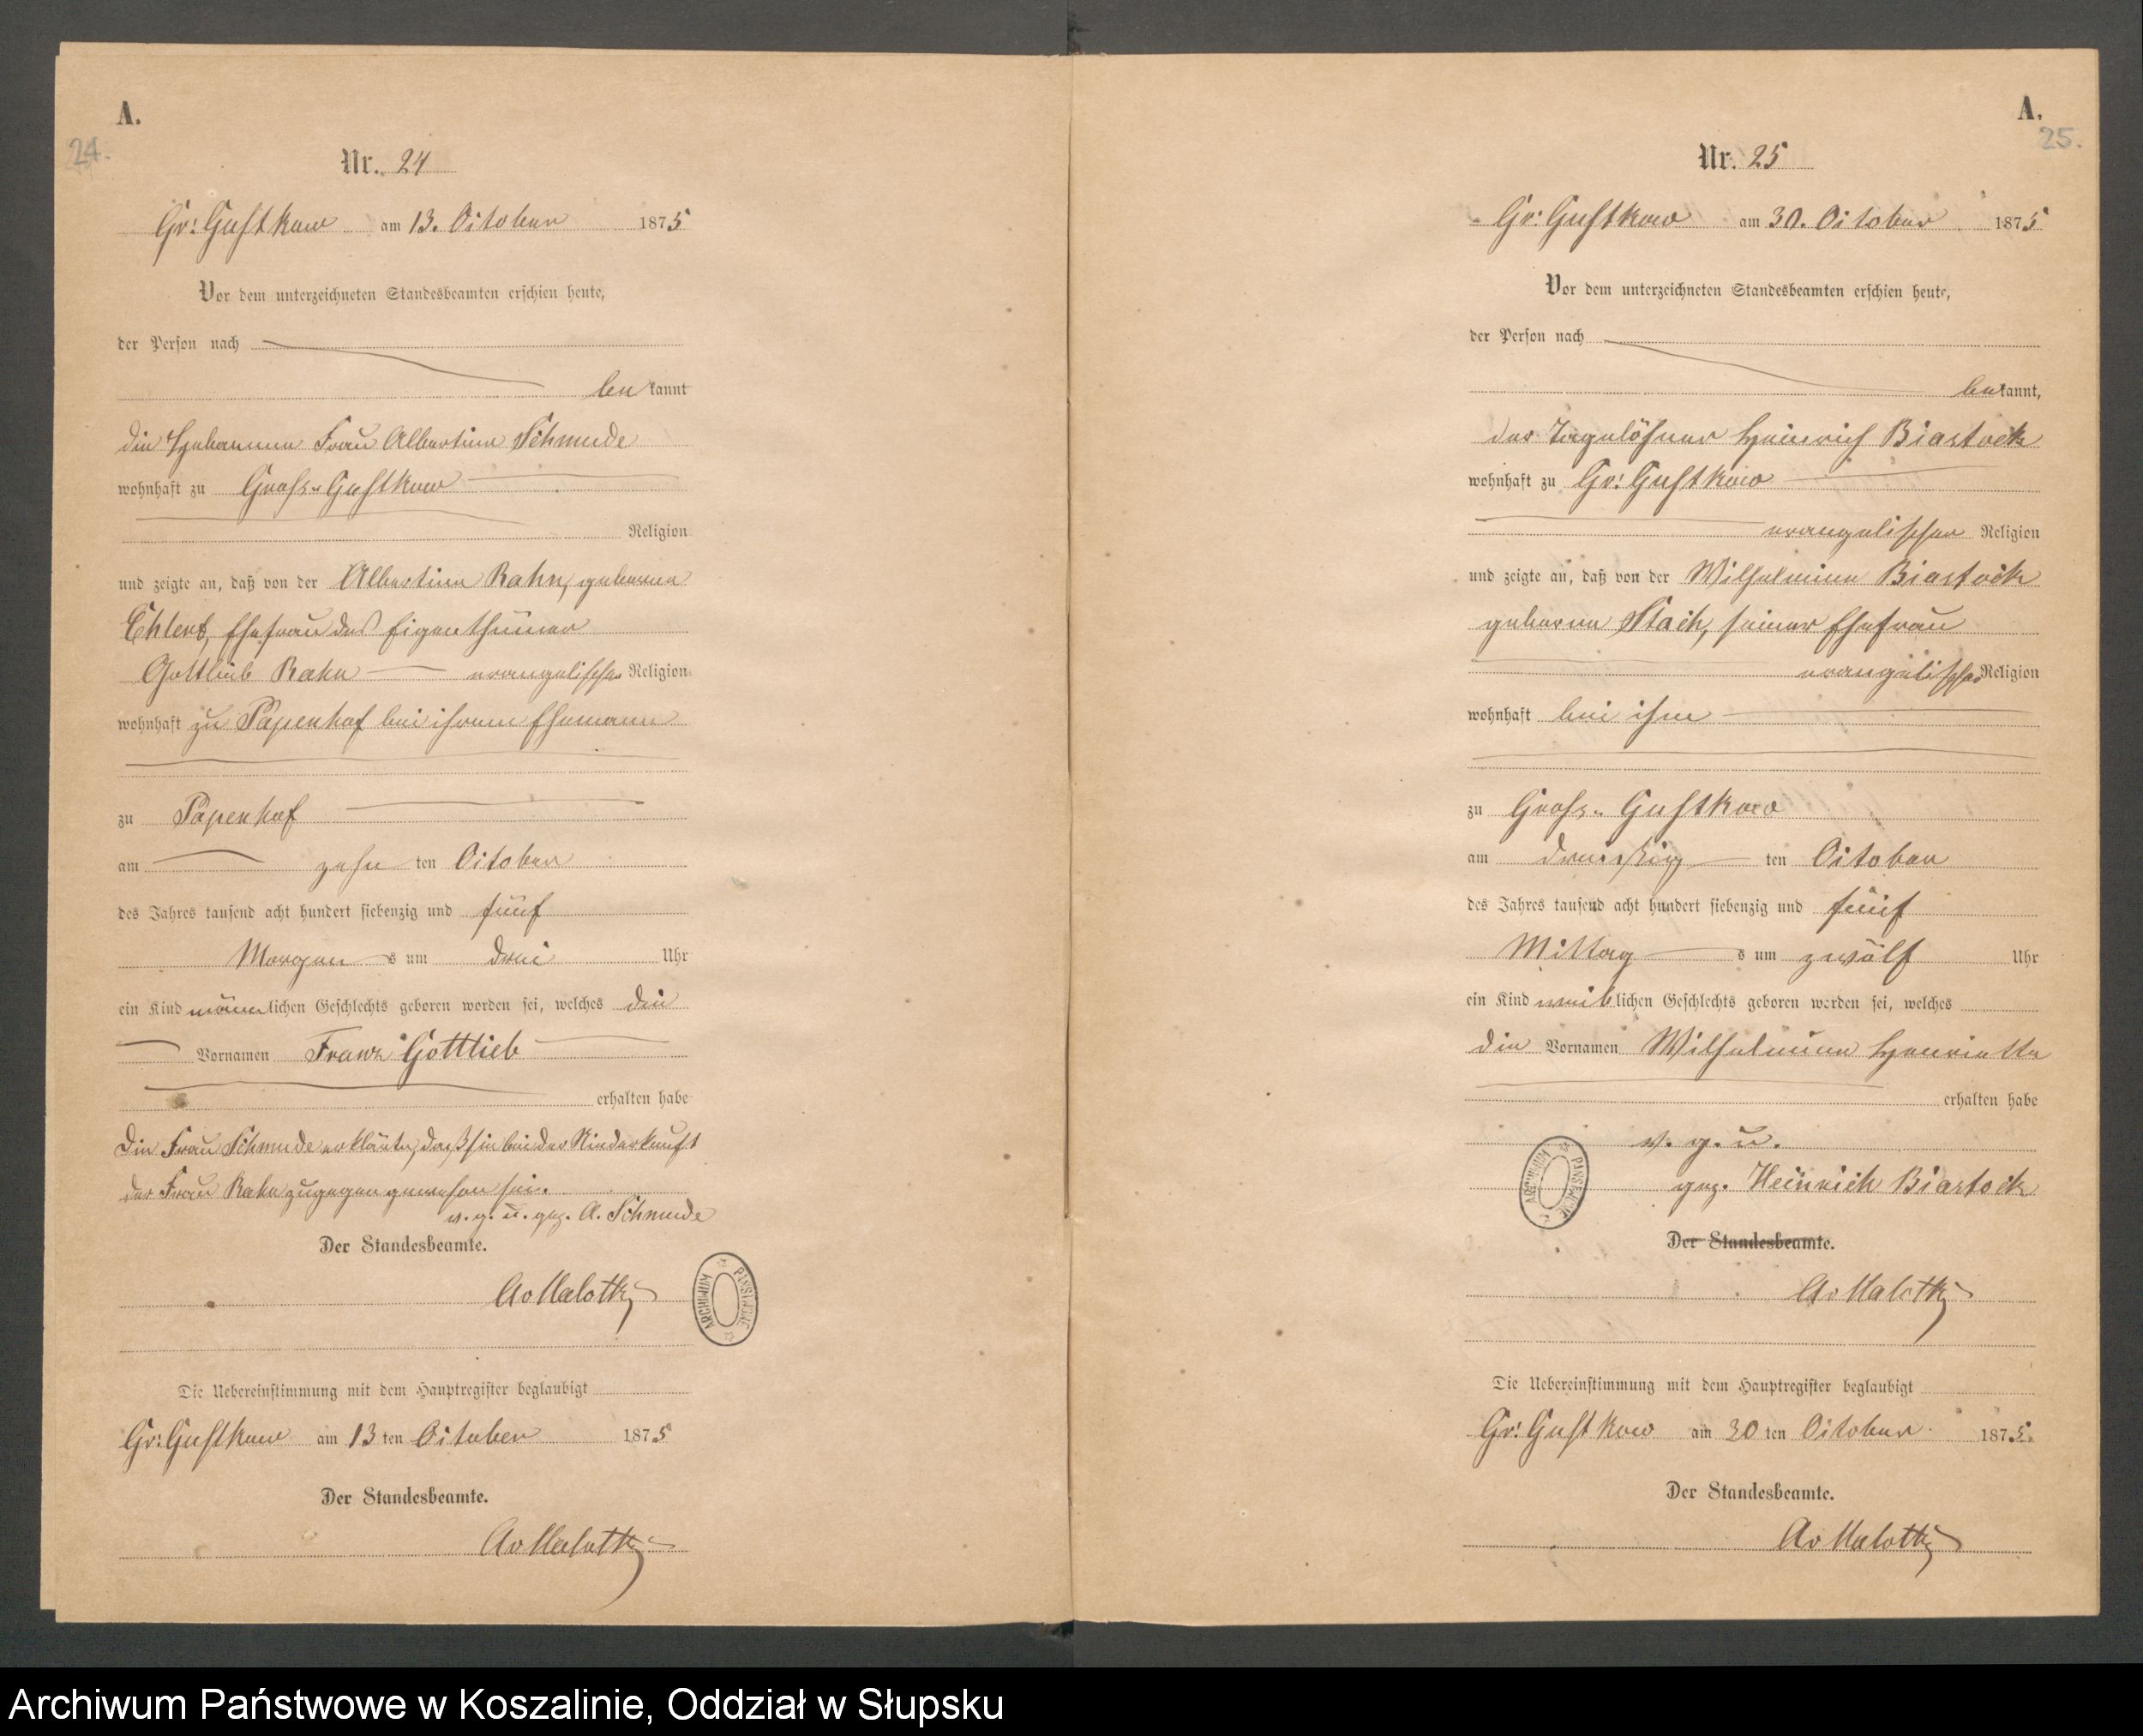 A.
24.
Nr. 24
Gr: Gustkow am 13. October 1875
Vor dem unterzeichneten Standesbeamten erschien heute,
der Person nach
be kannt
die Hebamme Frau Albertine Schmude
wohnhaft zu Gross-Gustkow
Religion
und zeigte an, daß von der Albertine Rahn, geborne
Ehlert, Ehefrau des Eigenthümer
Gottlieb Rahn evangelischer Religion
wohnhaft zu Papenhof bei ihrem Ehemann
zu Papenhof
am zehn ten October
des Jahres tausend acht hundert siebenzig und fünf
Morgen s um drei Uhr
ein Kind männlichen Geschlechts geboren worden sei, welches die
Vornamen Franz Gottlieb
erhalten habe
Die Frau Schmude erklärte, daß sie bei der Niederkunft
der Frau Rahn zugegen gewesen sei.
v. g. u. gez. A. Schmude
Der Standesbeamte.
AvMalottki
ARCHIWUM PAŃSTWOWE
Die Uebereinstimmung mit dem Hauptregister beglaubigt
Gr: Gustkow am 13 ten October 1875
Der Standesbeamte.
AvMalottki
A.
25.
Nr. 25
Gr: Gustkow am 30. October 1875
Vor dem unterzeichneten Standesbeamten erschien heute,
der Person nach
bekannt,
der Tagelöhner Heinrich Biastock
wohnhaft zu Gr: Gustkow
evangelischer Religion
und zeigte an, daß von der Wilhelmine Biastock
geborne Stach, seiner Ehefrau
evangelischer Religion
wohnhaft bei ihm
zu Gross-Gustkow
am dreissig ten October
des Jahres tausend acht hundert siebenzig und fünf
Mittag s um zwölf Uhr
ein Kind weiblichen Geschlechts geboren worden sei, welches
die Vornamen Wilhelmine Henriette
erhalten habe
v. g. u.
gez. Heinrich Biastock
ARCHIWUM PAŃSTWOWE
Der Standesbeamte.
AvMalottki
Die Uebereinstimmung mit dem Hauptregister beglaubigt
Gr: Gustkow am 30 ten October 1875.
Der Standesbeamte.
AvMalottki
Archiwum Państwowe w Koszalinie, Oddział w Słupsku